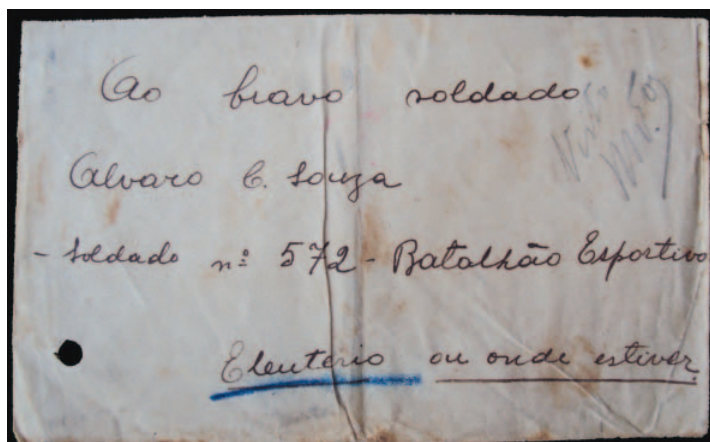 Ao bravo soldado
Alvaro C. Souza
- Soldado nº 572 - Batalhão Esportivo
Eleuterio ou onde estiver